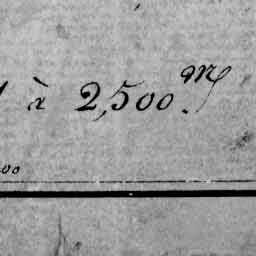 à 2,500 M
00